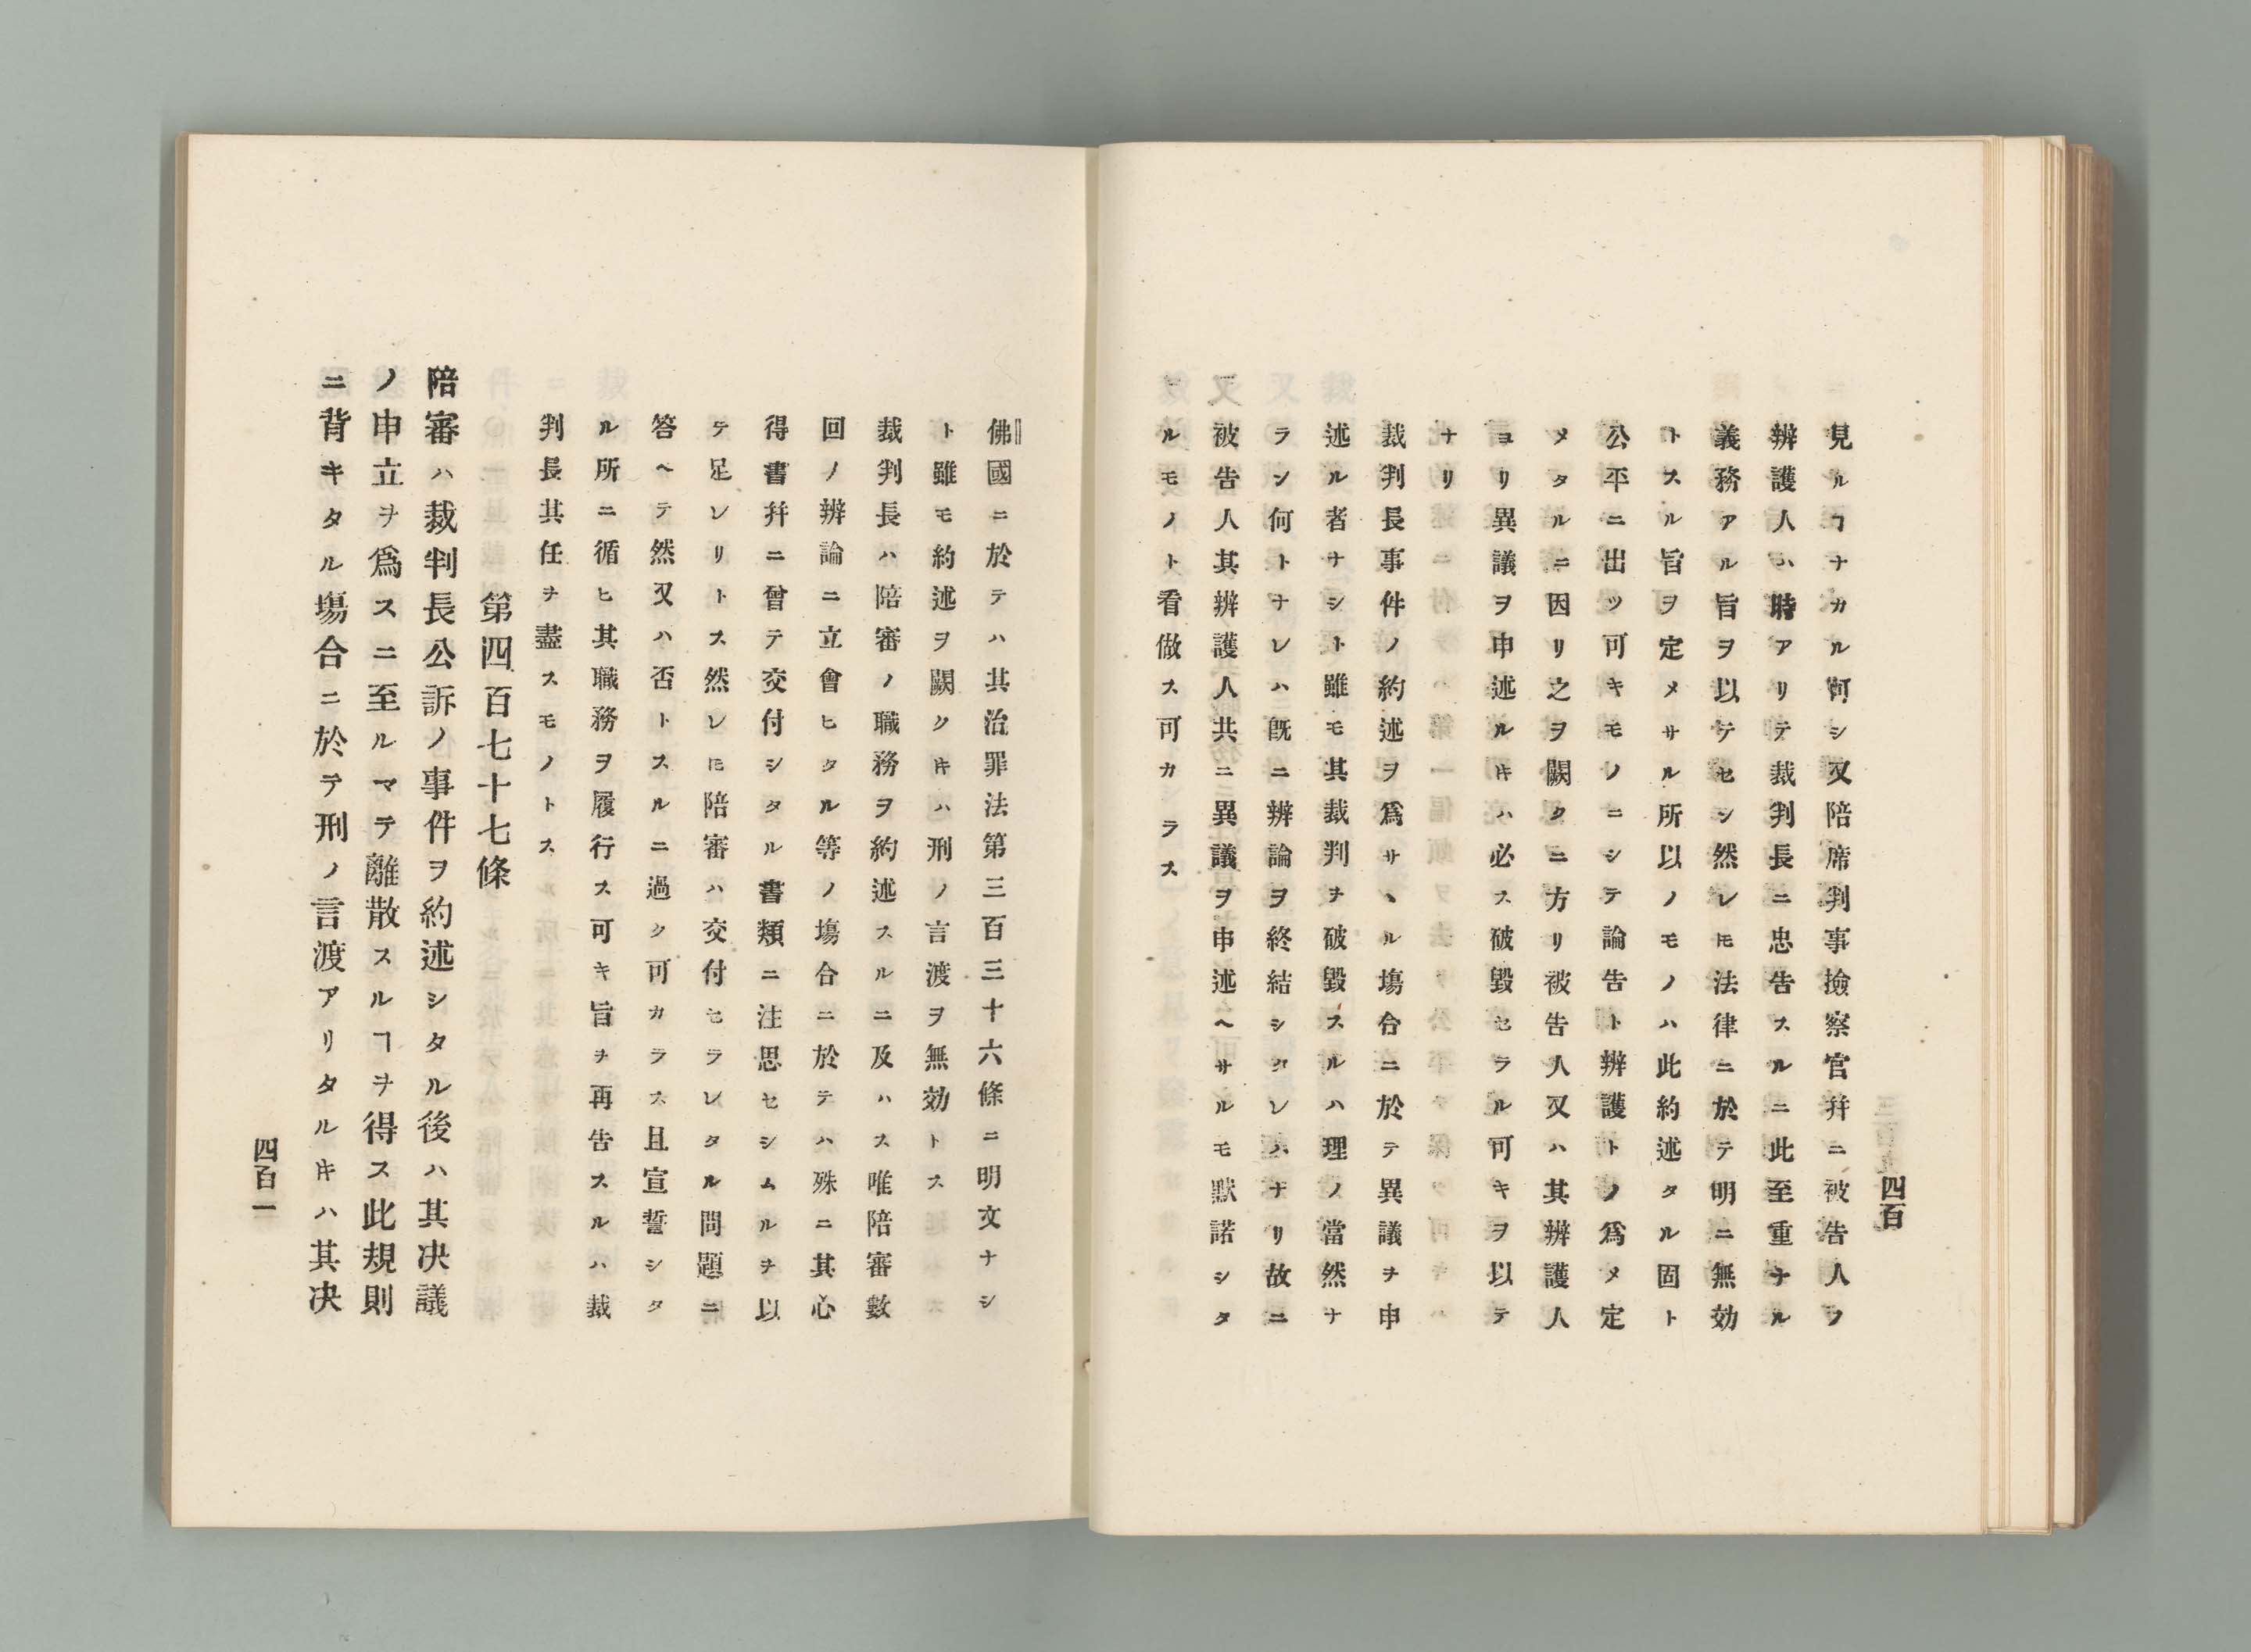 四百
見ルヿナカル可シ又陪席判事撿察官幷ニ被告人ノ
辨護人ハ時アリテ裁判長ニ忠告スルニ此至重ナル
義務アル旨ヲ以テセシ然レ𪜈法律ニ於テ明ニ無効
トスル旨ヲ定メサル所以ノモノハ此約述タル固ト
公平ニ出ツ可キモノニシテ論告ト辨護トノ爲メ定
メタルニ因リ之ヲ闕クニ方リ被告人又ハ其辨護人
ヨリ異議ヲ申述ルキハ必ス破毀セラル可キヲ以テ
ナリ
裁判長事件ノ約述ヲ爲サヽル塲合ニ於テ異議ヲ申
述ル者ナシト雖モ其裁判ヲ破毀スルハ理ノ當然ナ
ラン何トナレハ既ニ辨論ヲ終結シタレハナリ故ニ
被告人其辨護人共ニ異議ヲ申述ヘサルモ默諾シタ
ルモノト看做ス可カラス
佛國ニ於テハ其治罪法第三百三十六條ニ明文ナシ
ト雖モ約述ヲ闕クキハ刑ノ言渡ヲ無効トス
裁判長ハ陪審ノ職務ヲ約述スルニ及ハス唯陪審數
回ノ辨論ニ立會ヒタル等ノ塲合ニ於テハ殊ニ其心
得書幷ニ曾テ交付シタル書類ニ注思セシムルヲ以
テ足レリトス然レ𪜈陪審ハ交付セラレタル問題ニ
答ヘテ然又ハ否トスルニ過ク可カラス且宣誓シタ
ル所ニ循ヒ其職務ヲ履行ス可キ旨ヲ再告スルハ裁
判長其任ヲ盡スモノトス
第四百七十七條
陪審ハ裁判長公訴ノ事件ヲ約述シタル後ハ其決議
ノ申立ヲ爲スニ至ルマテ離散スルヿヲ得ス此規則
ニ背キタル塲合ニ於テ刑ノ言渡アリタルキハ其決
四百一